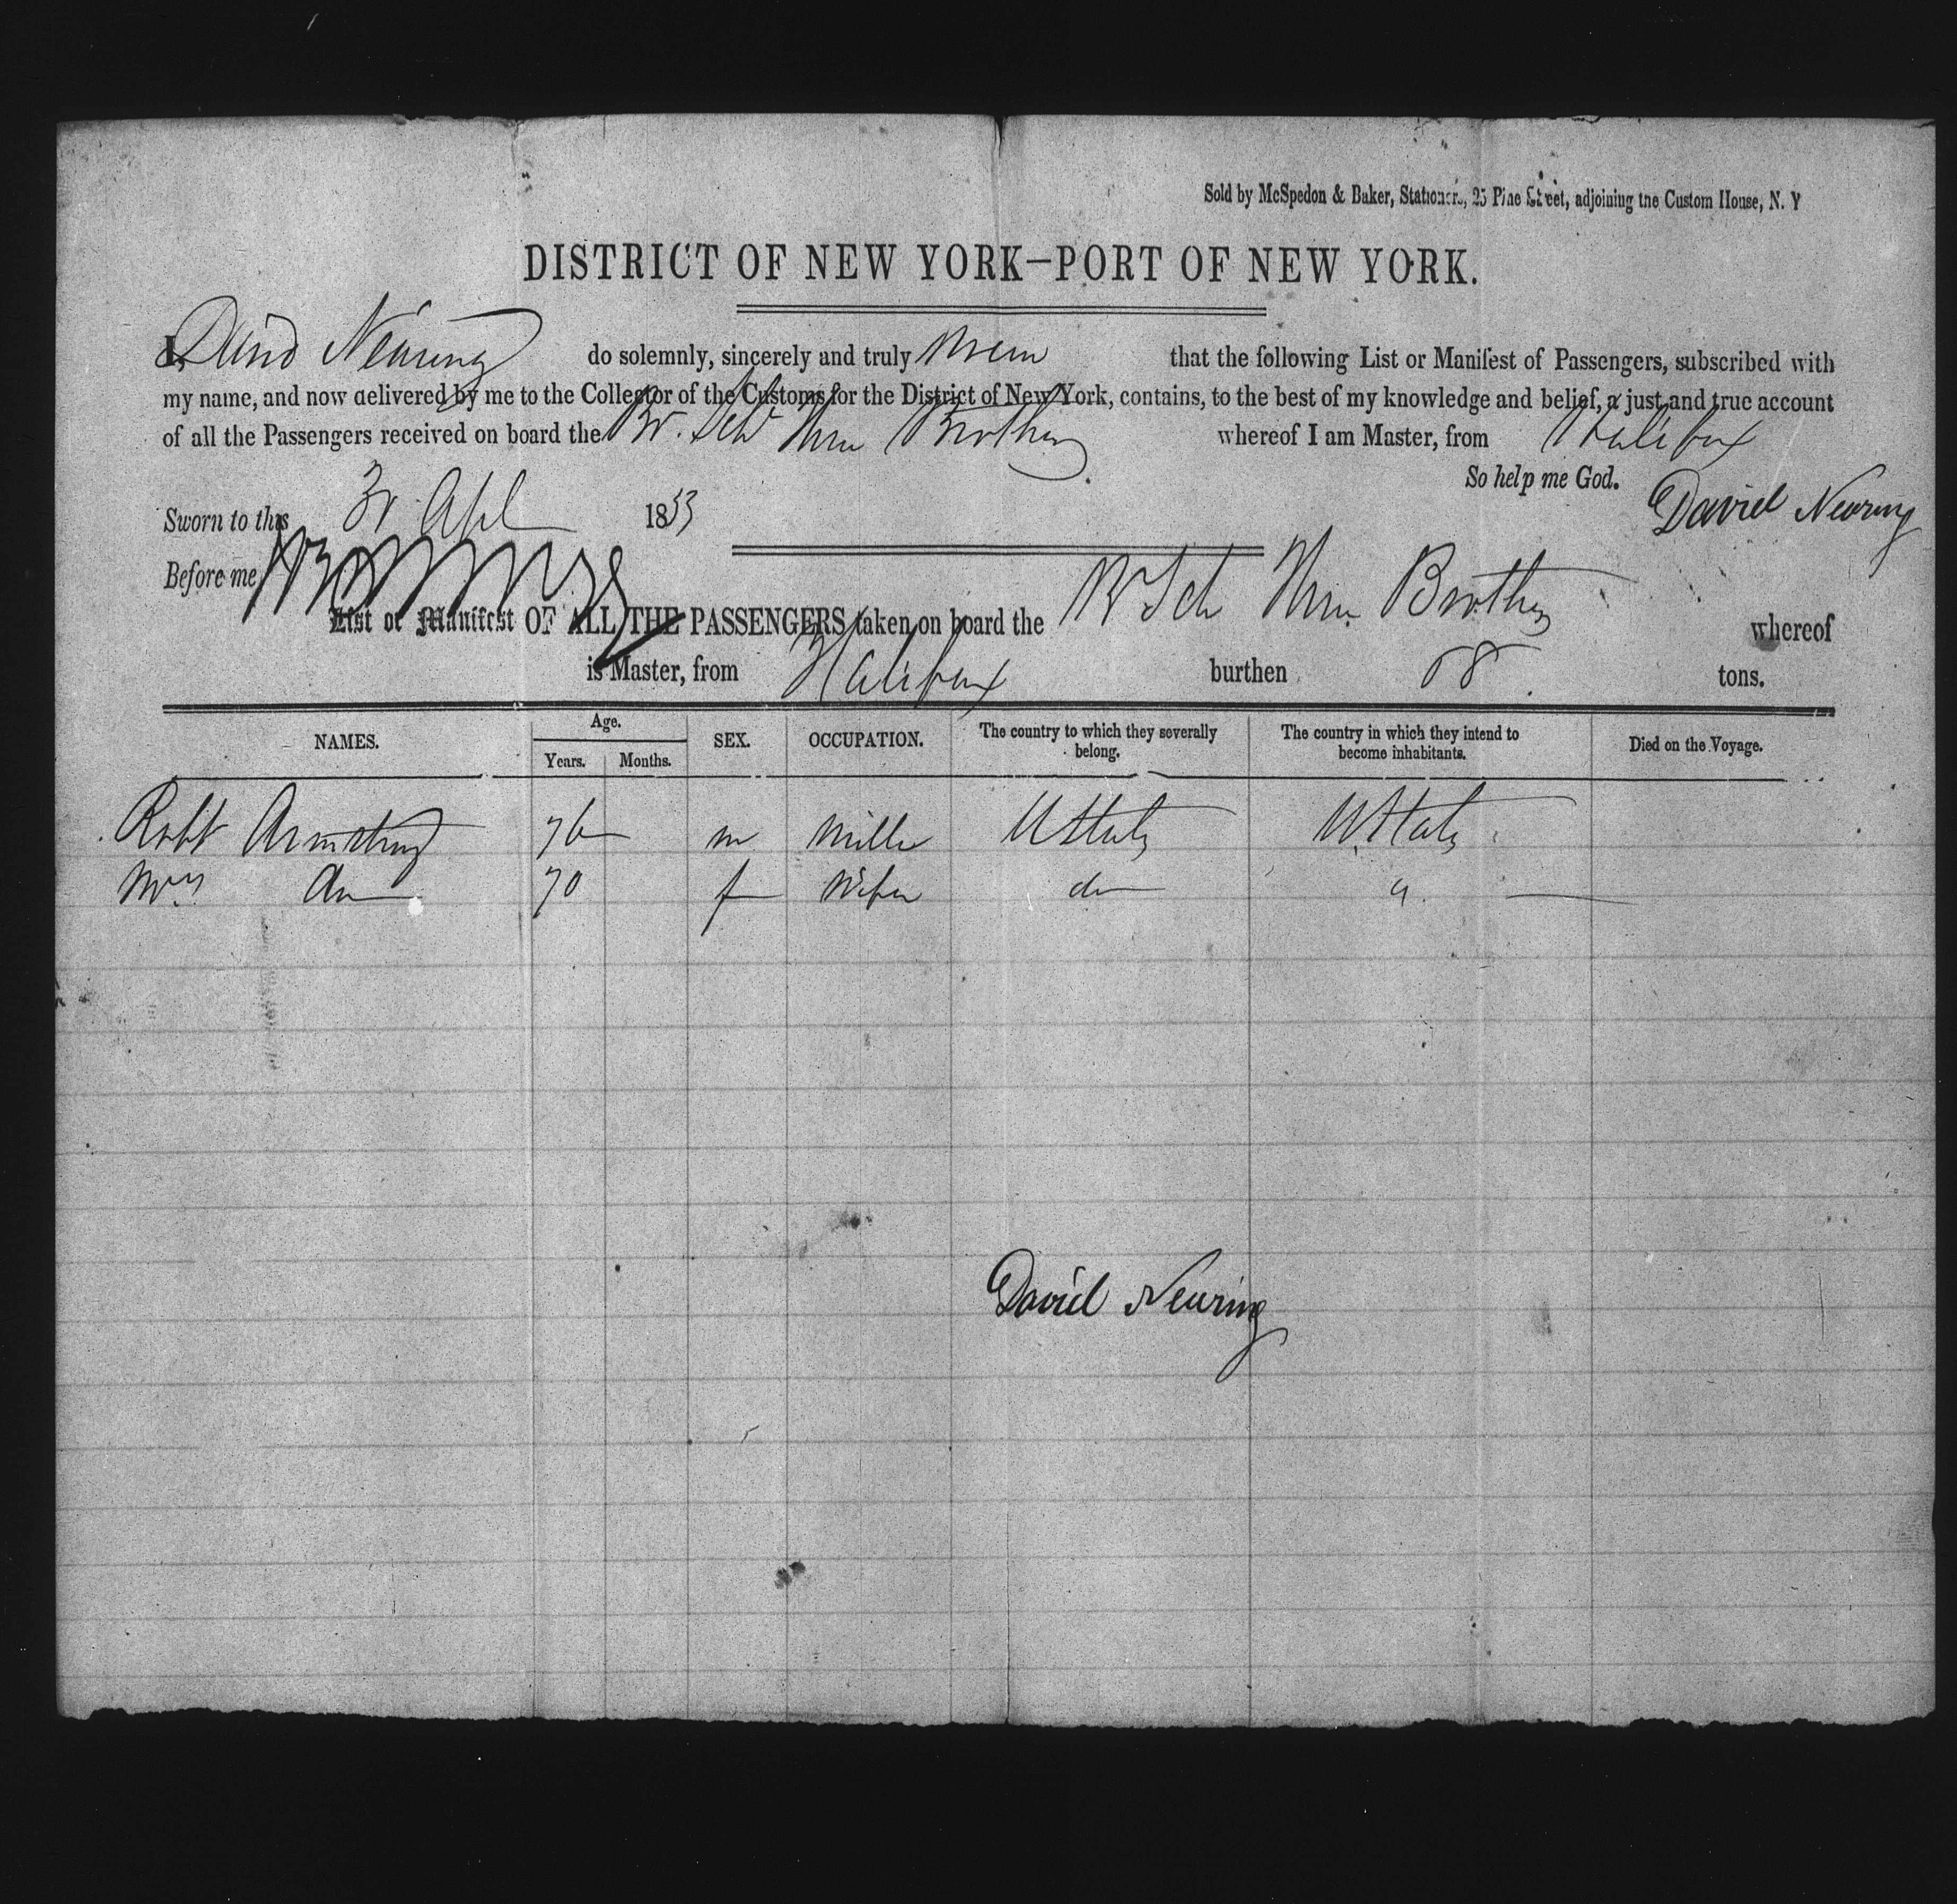 Sold by McSpedon & Baker, Stationers, 25 Pine Street, adjoining the Custom House, N. Y
DISTRICT OF NEW YORK—PORT OF NEW YORK.
I, David Nearing do solemnly, sincerely and truly swear that the following List or Manifest of Passengers, subscribed with
my name, and now delivered by me to the Collector of the Customs for the District of New York, contains, to the best of my knowledge and belief, a just and true account
of all the Passengers received on board the Br. Sch Brothers whereof I am Master, from Halifax
So help me God. David Nearing
Sworn to this Apl 1853
Before me
List or Manifest OF ALL THE PASSENGERS taken on board the Br Sch Brothers whereof
is Master, from Halifax burthen tons.
NAMES. Age. Years. Months. SEX. OCCUPATION. The country to which they severally belong. The country in which they intend to become inhabitants. Died on the Voyage.
Robt Armstrong 76 m Miller UStates UStates
Mrs Do 70 f Wife do "
David Nearing